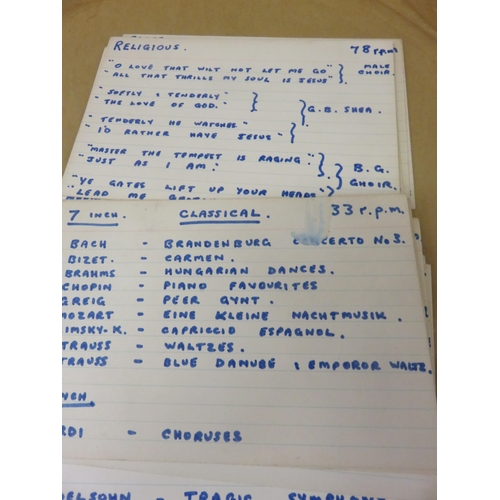 RELIGIOUS. 78 r.p.m.
"O LOVE THAT WILT NOT LET ME GO" } MALE
"ALL THAT THRILLS MY SOUL IS JESUS" } CHOIR.
"SOFTLY & TENDERLY" }
"THE LOVE OF GOD." } G.B. SHEA.
"TENDERLY HE WATCHES" }
"I'D RATHER HAVE JESUS" }
"MASTER THE TEMPEST IS RAGING" }
"JUST AS I AM." } B.G.
"YE GATES LIFT UP YOUR HEADS" } CHOIR.
LEAD ME
7 INCH. CLASSICAL. 33 r.p.m.
BACH - BRANDENBURG CONCERTO No 3.
BIZET. - CARMEN.
BRAHMS - HUNGARIAN DANCES.
CHOPIN - PIANO FAVOURITES
GREIG - PEER GYNT.
MOZART - EINE KLEINE NACHTMUSIK.
IMSKY-K. - CAPRICCIO ESPAGNOL.
TRAUSS - WALTZES.
TRAUSS - BLUE DANUBE & EMPOROR WALTZ.
NCH.
RDI - CHORUSES
DELSOHN - TRAGIC SYMPHONY